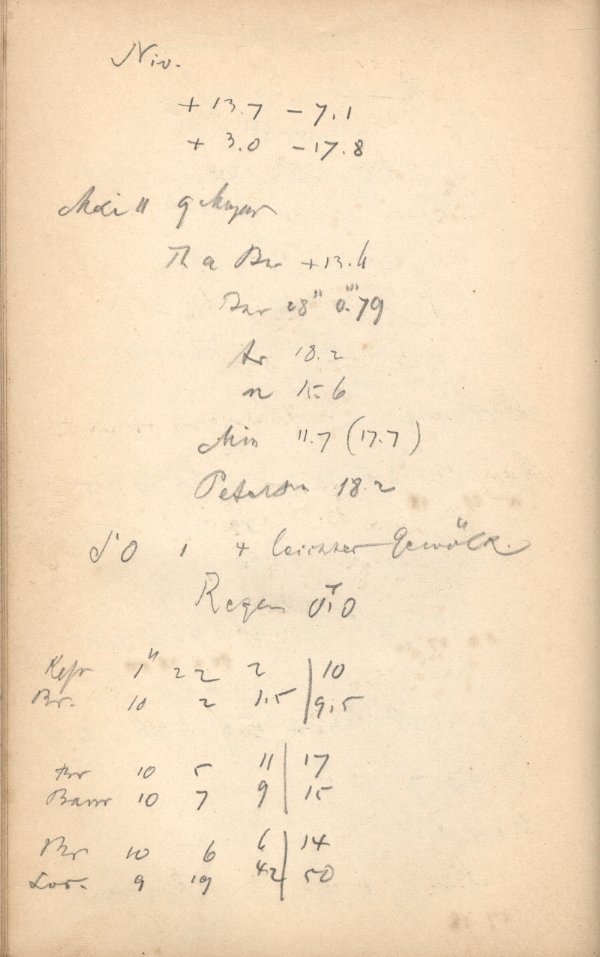 Niv.
+ 13.7 - 7.1
+ 3.0 - 17.8
Mai 11 9
Th a Br +13.6
Bar 28" 0.'''79
tr 18.2
n 15.6
Min 11.7 (17.7)
Peterson 18.2
SO 1 4 leichter Gewölk.
Regen 0.0
1" 22 2 | 10
Br. 10 2 1.5 | 9.5
Br 10 5 11 | 17
Barr 10 7 9 | 15
Br 10 6 6 | 14
9 19 42 | 50